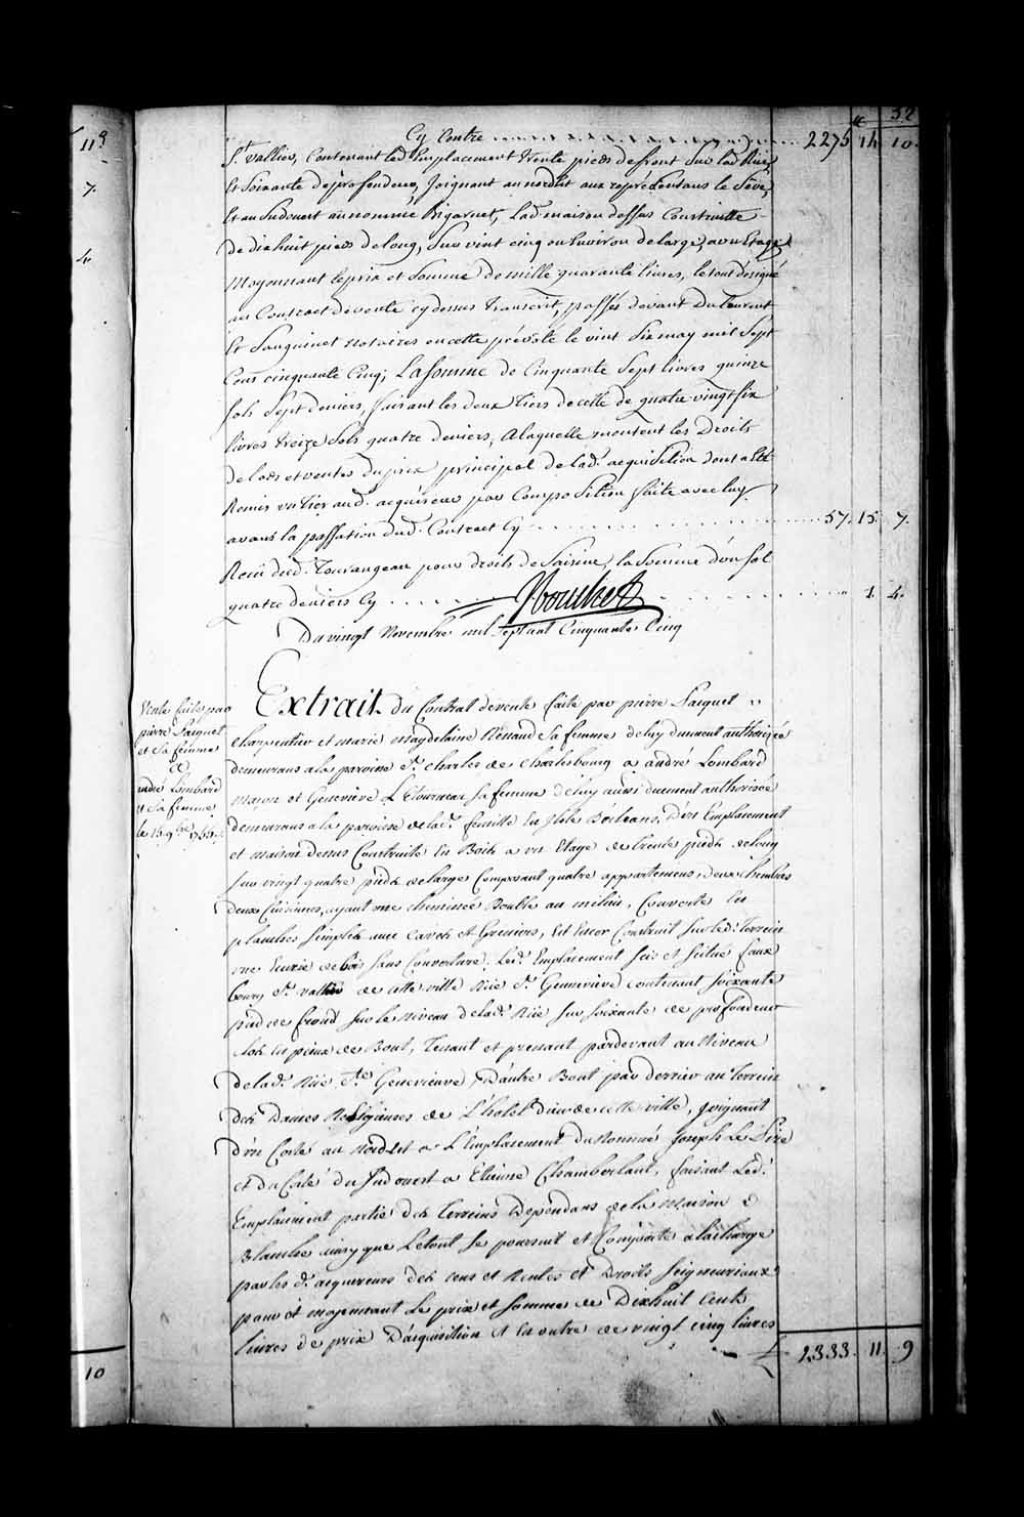 52
Cy Contre ........ 2275 14 10.
St. Vallier, Contenant led. Emplacement Trente pieds de front Sur lad. Rüe,
Et Soixante de profondeur, Joignant au nordest aux représentans le Sêve,
Et au Sudouest au nommé Bigarnet, Lad. maison dessus Construitte
de dixhuit pieds de long, Sur vint cinq ou Environ de large, a un Etage
Moyennant le prix et Somme de mille quarante livres, le tout désigné
au Contract de vente cy dessus transcrit, passés devant Dulaurent
Et Sanguinet Notaires en cette prévôté le vint Six may mil Sept
Cens cinquante Cinq; La Somme de Cinquante Sept livres quinze
Sols Sept deniers, faisant les deux tiers de celle de quatre vingt six
livres treize Sols quatre deniers, A laquelle montent les Droits
de lods et ventes du prix principal de lad. acquisition dont a Eté
Remis un tiers aud. acquéreur par Composition faite avec luy
avant la passation dud. Contract Cy ........ 57. 15. 7.
Reçu dud. Tourangeau pour droits de Saisine, la Somme d'un Sol
quatre deniers Cy ........ " 1. 4.
Du vingt Novembre mil Sept cent Cinquante Cinq
Extrait du Contrat de vente faite par pierre Paquet
charpentier et marie magdelaine Renaud Sa femme de luy duement authorisée
demeurans a la paroisse St. Charles de Charlesbourg a andré Lombard
Macon et Genevieve Letourneau Sa femme de luy aussi duement authorisée
demeurans a la paroisse de la Ste. famille En lisle D'orleans, D'un Emplacement
et maison dessus Construite En Bois a un Etage de trente pieds de long
sur vingt quatre pieds de large Composant quatre appartemens, deux chambres
deux Cuisinnes, ayant une cheminée Double au milieu, Couverte En
planches Simples avec caves et Greniers, Est Encor Construit Sur led. Terrein
une Ecurie de bois Sans Couverture; Led. Emplacement Sis et Scitué faux
bourg St. vallier de cette ville Rüe Ste. Genevieve contenant Soixante
pied de front Sur le niveau de lad. Rüe Sur Soixante de profondeur
clos En pieux de Bout, Tenant et prenant pardevant au Niveau
de lad. Rüe Ste. Genevieuve, D'autre Bout par derrier au Terrein
des Dames Religieuses de L'hotel Dieu de cette ville, Joignant
D'un Costé au Nordest a L'Emplacement Du Nommé Joseph Le Sire
et Du Coté du Sudouest a Etienne Chamberlant, faisant Led.
Emplacement partie des terreins Dependans de la Maison
Blanche ainsy que Letout Se poursuit et Comporte a la charge
par les d. acquereurs des cens et Rentes et Droits Seigneuriaux
pour et moyennant Le prix et Somme de Dixhuit Cents
livres de prix D'acquisition et En outre de vingt cinq livres
2333. 11. 9
Vente faite par
pierre Paquet
et Sa femme
a
andré Lombard
et Sa femme
11 8
7.
4.
10